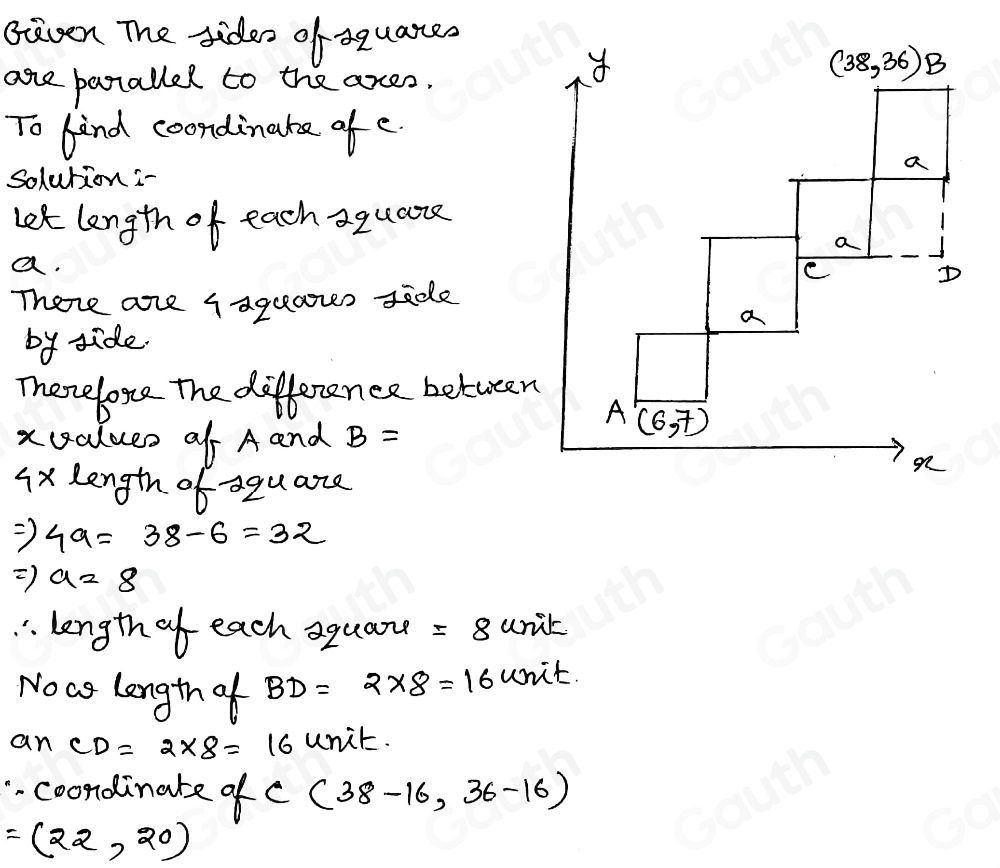 Given The sides of squares
are parallel to the axes.
To find coordinate of c.
Solution :-
Let length of each square
a.
There are 4 squares side
by side.
Therefore The difference between
x values of A and B =
4x length of square
=) 4a = 38-6 = 32
=) a = 8
∴ length of each square = 8 unit
Now length of BD = 2x8 = 16 unit.
an CD = 2x8 = 16 unit.
∴ coordinate of C (38-16, 36-16)
= (22, 20)
y
(38,36) B
a
a
C
D
a
A (6,7)
x
Gauth